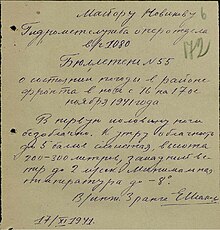 Майору Новикову 6
Гидрометслужба оперотдела
в/ч 1080
172
Бюллетень №55
о состоянии погоды в районе
фронта в ночь с 16 на 17ое
ноября 1941 года
В первую половину ночи
безоблачно. К утру облачность
до 5 баллов слоистая, высота
200-300 метров, западный ве-
тер до 2 м/сек. Минимальная
температура до -8°.
В/инт. 3 ранга
17/XI 1941.